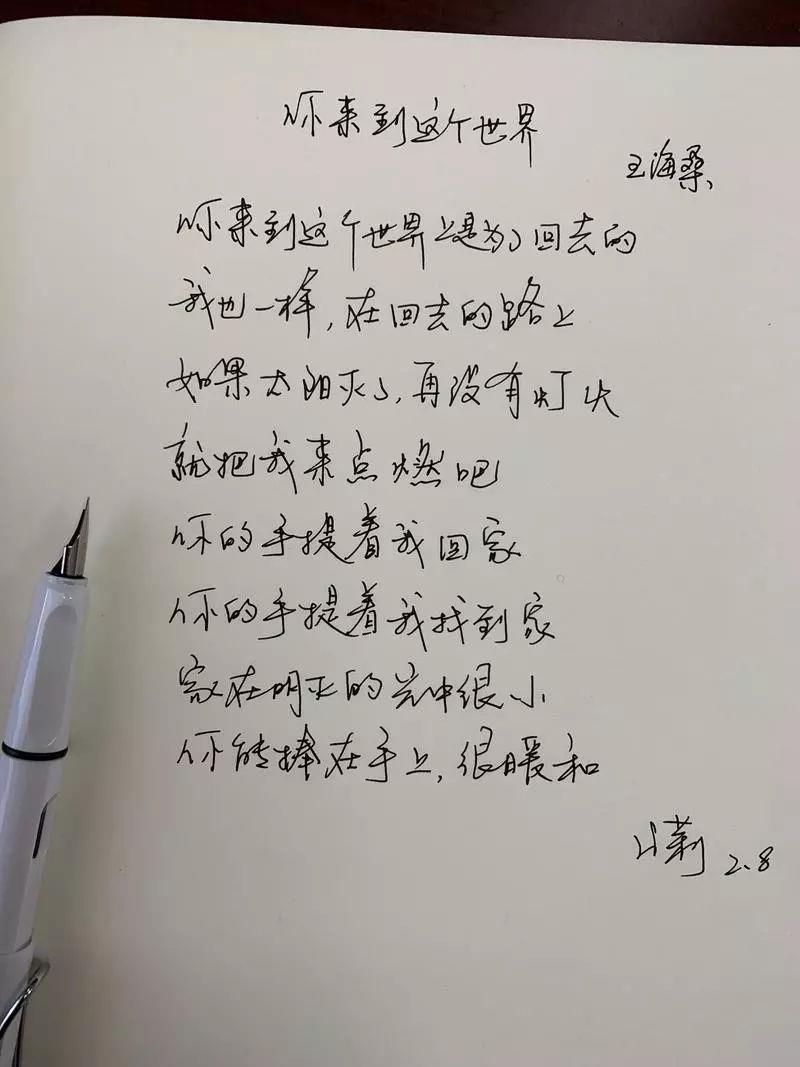 你来到这个世界
王海桑
你来到这个世界上是为了回去的
我也一样,在回去的路上
如果太阳灭了,再没有灯火
就把我来点燃吧
你的手提着我回家
你的手提着我找到家
家在明亮的光中很小
你能捧在手上,很暖和
莉 2.8